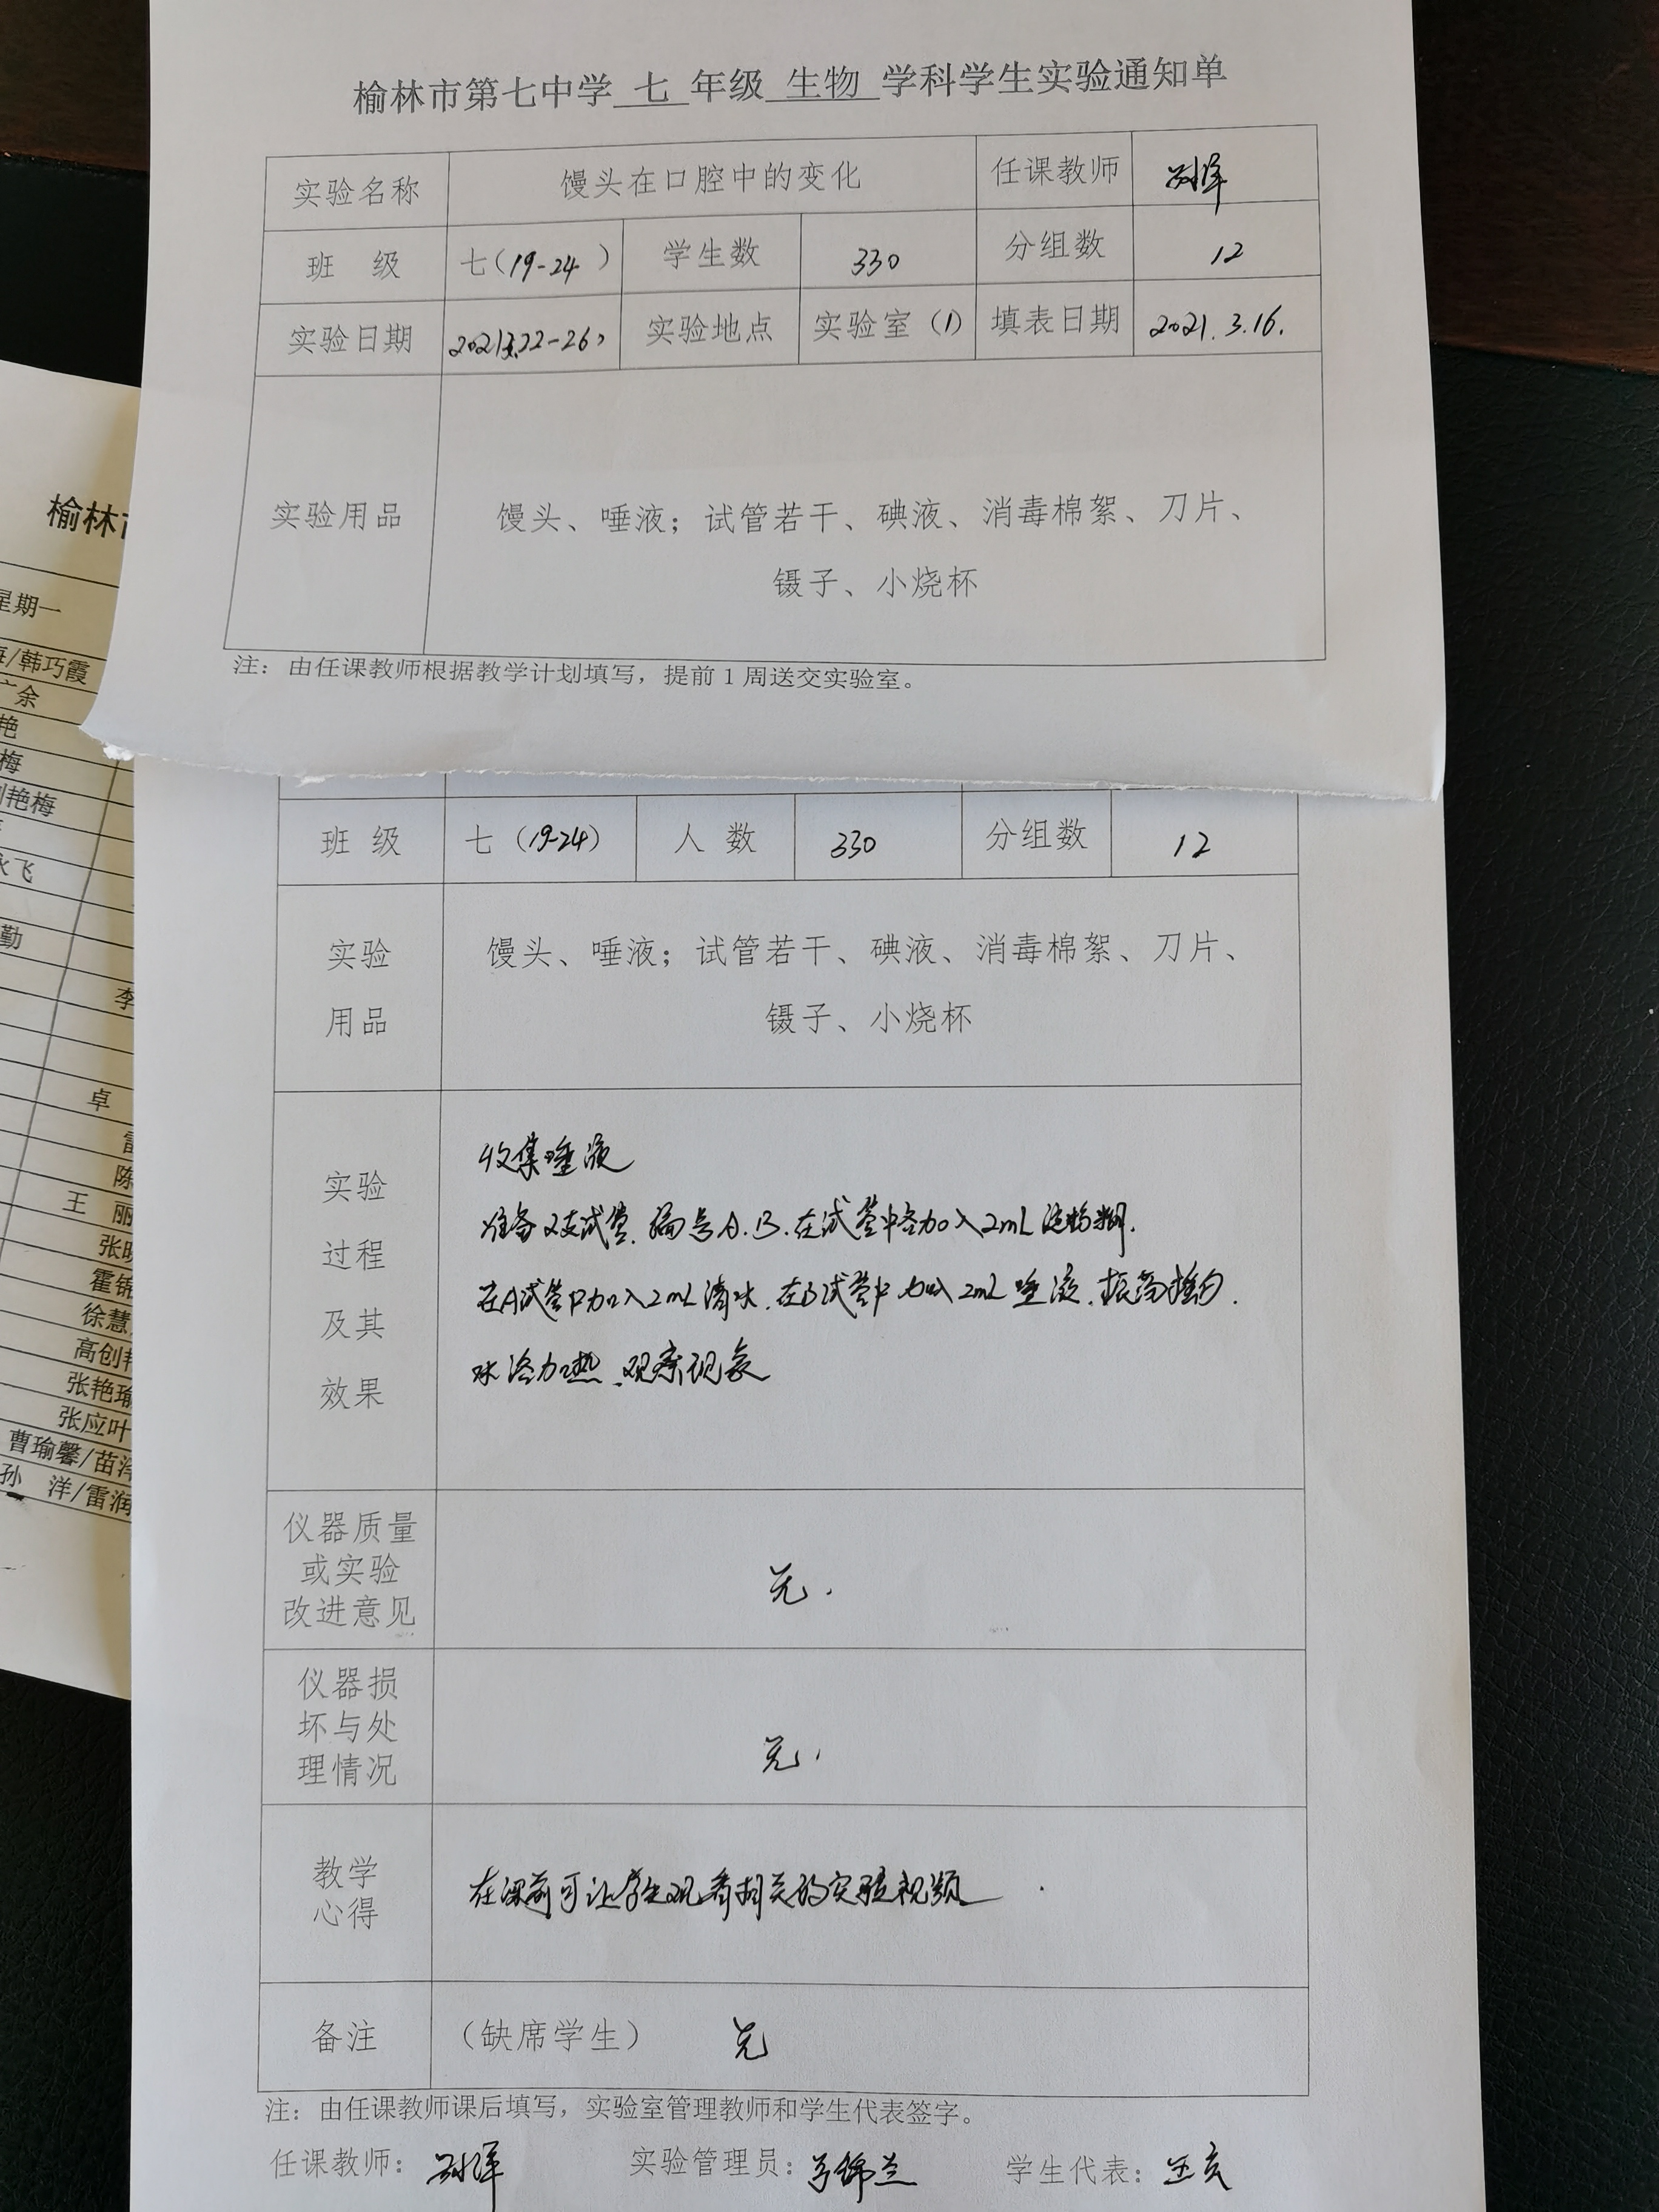 榆林市第七中学 七 年级 生物 学科学生实验通知单
实验名称 馒头在口腔中的变化 任课教师
班 级 七(19-24 ) 学生数 330 分组数 12
实验日期 2021.3.22-26 实验地点 实验室(1) 填表日期 2021.3.16.
实验用品 馒头、唾液;试管若干、碘液、消毒棉絮、刀片、
镊子、小烧杯
注:由任课教师根据教学计划填写,提前1周送交实验室。
班 级 七(19-24) 人 数 330 分组数 12
实验
用品
馒头、唾液;试管若干、碘液、消毒棉絮、刀片、
镊子、小烧杯
实验
过程
及其
效果
收集唾液
准备2支试管.编号A.B.在试管中各加入2mL淀粉糊.
在A试管中加入2mL清水.在B试管中加入2mL唾液.振荡摇匀.
水浴加热.观察现象
仪器质量
或实验
改进意见
无.
仪器损
坏与处
理情况
无.
教学
心得
在课前可让学生观看相关的实验视频
备注 (缺席学生) 无
注:由任课教师课后填写,实验室管理教师和学生代表签字。
任课教师: 实验管理员: 学生代表:
榆林
星期一
/韩巧霞
余
艳
梅
艳梅
飞
勤
李
卓
雷
陈
王 丽
张
霍锦
徐慧
高创
张艳瑜
张应叶
曹瑜馨/苗洋
孙 洋/雷润